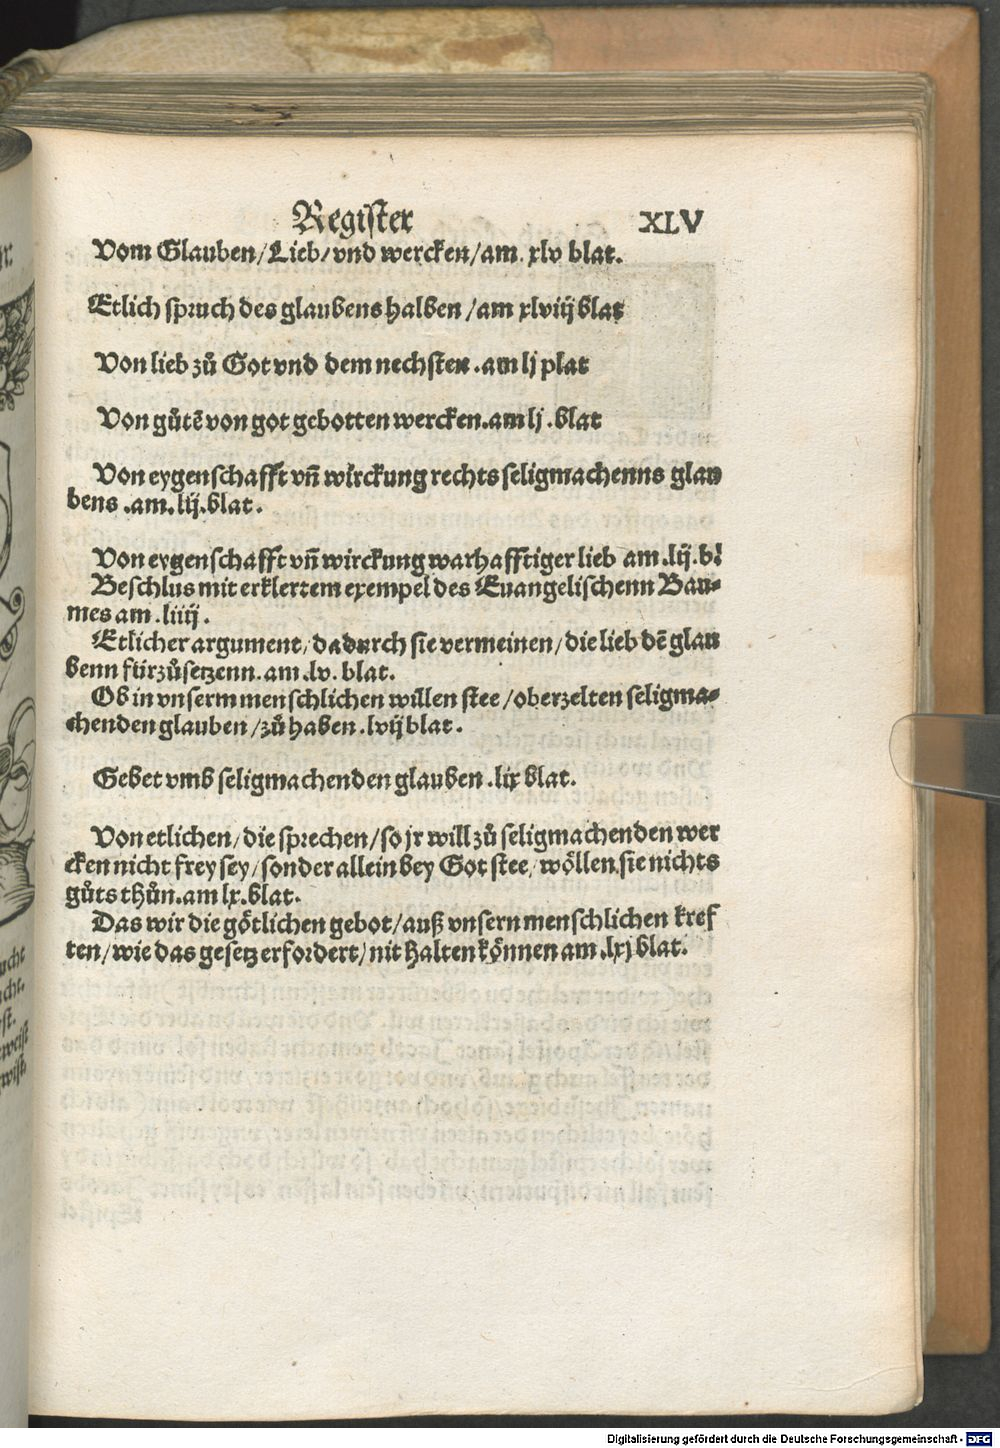 Register XLV
Vom Glauben/Lieb/vnd wercken/am. xlv blat.
Etlich spruch des glaubens halben/am xlviij blat
Von lieb zů Got vnd dem nechsten.am lj plat
Von gůtē von got gebotten wercken.am lj.blat
Von eygenschafft vn̄ wirckung rechts seligmachenns glau
bens.am.lij.blat.
Von eygenschafft vn̄ wirckung warhafftiger lieb am.lij.bl
Beschlus mit erklertem exempel des Euangelischenn Bau-
mes am.liiij.
Etlicher argument/dadurch sie vermeinen/die lieb dē glau
benn fürzůsetzenn.am.lv.blat.
Ob in vnserm menschlichen willen stee/oberzelten seligma-
chenden glauben/zů haben.lvij blat.
Gebet vmb seligmachenden glauben.lix blat.
Von etlichen/die sprechen/so jr will zů seligmachenden wer
cken nicht frey sey/sonder allein bey Got stee/wöllen sie nichts
gůts thůn.am lx.blat.
Das wir die götlichen gebot/auß vnsern menschlichen kref
ten/wie das gesetz erfordert/nit halten können am.lxj blat.
ucht
cht.
st.
weist
wist
Digitalisierung gefördert durch die Deutsche Forschungsgemeinschaft - DFG